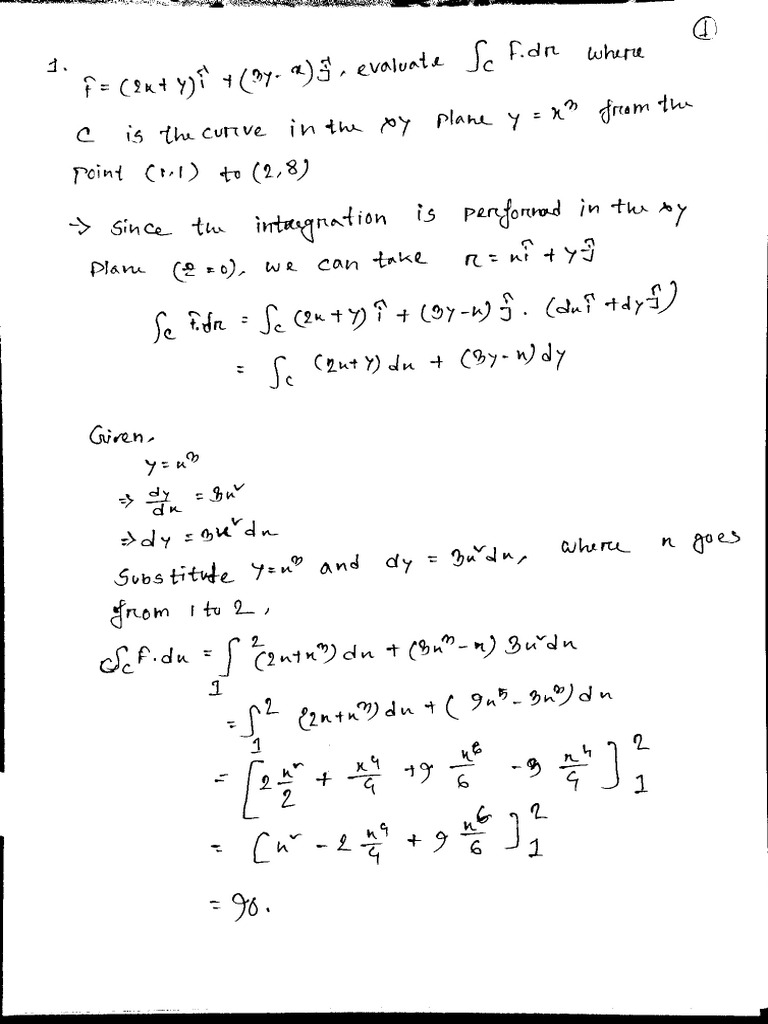 ①
1. f̂ = (2x + y)î + (3y - x)ĵ, evaluate ∫_C F.dr where
C is the curve in the xy plane y = x³ from the
point (1,1) to (2,8)
→ Since the integration is performed in the xy
plane (z = 0), we can take r = xî + yĵ
∫_C F.dr = ∫_C (2x + y)î + (3y - x)ĵ . (dxî + dyĵ)
= ∫_C (2x + y) dx + (3y - x) dy
Given,
y = x³
⇒ dy/dx = 3x²
⇒ dy = 3x² dx
Substitute y = x³ and dy = 3x² dx, where x goes
from 1 to 2,
∫_C F.dx = ∫₁² (2x + x³) dx + (3x³ - x) 3x² dx
= ∫₁² (2x + x³) dx + (9x⁵ - 3x³) dx
= [2 x²/2 + x⁴/4 + 9 x⁶/6 - 3 x⁴/4]₁²
= [x² - 2 x⁴/4 + 9 x⁶/6]₁²
= 90.